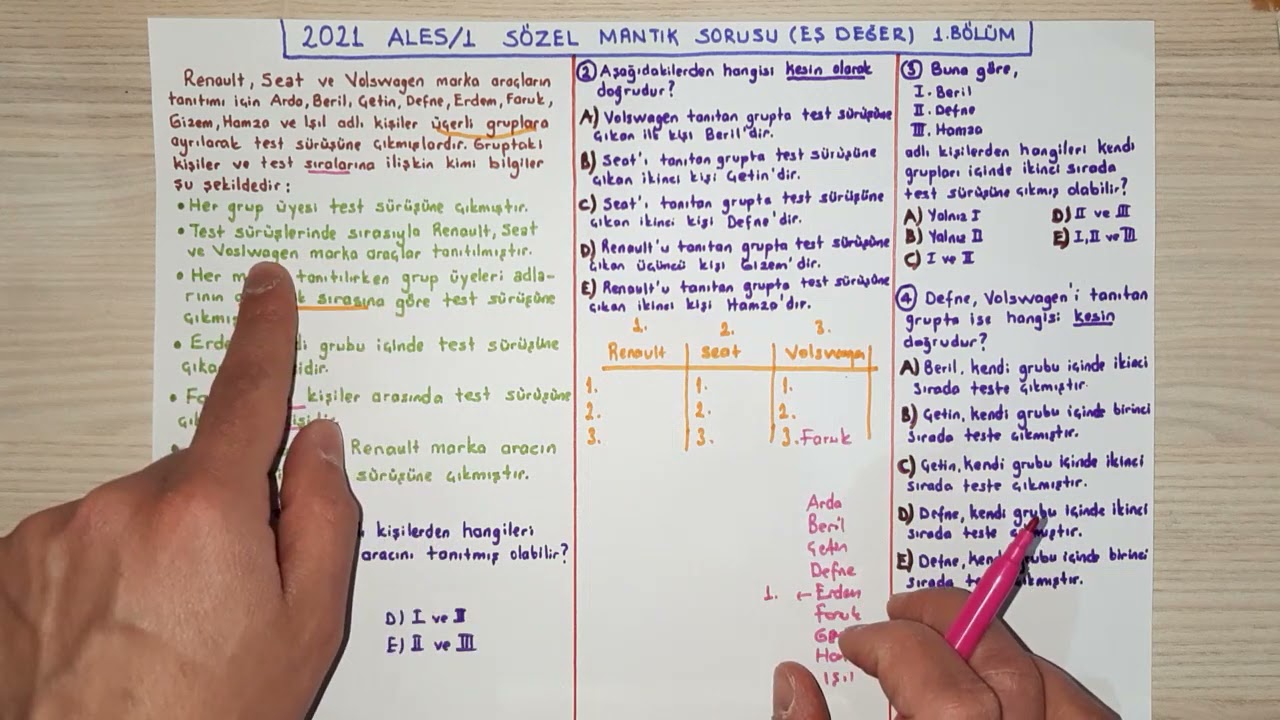 2021 ALES/1 SÖZEL MANTIK SORUSU (EŞ DEĞER) 1.BÖLÜM
Renault, Seat ve Volswagen marka araçların
tanıtımı için Arda, Beril, Çetin, Defne, Erdem, Faruk,
Gizem, Hamza ve Işıl adlı kişiler üçerli gruplara
ayrılarak test sürüşüne çıkmışlardır. Gruptaki
kişiler ve test sıralarına ilişkin kimi bilgiler
şu şekildedir:
• Her grup üyesi test sürüşüne çıkmıştır.
• Test sürüşlerinde sırasıyla Renault, Seat
ve Voslwagen marka araçlar tanıtılmıştır.
• Her tanıtılırken grup üyeleri adla-
rının sırasına göre test sürüşüne
çıkmış
• Erde grubu içinde test sürüşüne
çıka
• kişiler arasında test sürüşüne
Renault marka aracın
sürüşüne çıkmıştır.
kişilerden hangileri
aracını tanıtmış olabilir?
D) I ve II
E) II ve III
② Aşağıdakilerden hangisi kesin olarak
doğrudur?
A) Volswagen tanıtan grupta test sürüşüne
çıkan ilk kişi Beril'dir.
B) Seat'ı tanıtan grupta test sürüşüne
çıkan ikinci kişi Çetin'dir.
C) Seat'ı tanıtan grupta test sürüşüne
çıkan ikinci kişi Defne'dir.
D) Renault'u tanıtan grupta test sürüşüne
çıkan üçüncü kişi Gizem'dir.
E) Renault'u tanıtan grupta test sürüşüne
çıkan ikinci kişi Hamza'dır.
1. 2. 3.
Renault Seat Volswagen
1. 1. 1.
2. 2. 2.
3. 3. 3. Faruk
Arda
Beril
Çetin
Defne
1. ← Erdem
Faruk
Işıl
③ Buna göre,
I. Beril
II. Defne
III. Hamza
adlı kişilerden hangileri kendi
grupları içinde ikinci sırada
test sürüşüne çıkmış olabilir?
A) Yalnız I D) II ve III
B) Yalnız II E) I, II ve III
C) I ve II
④ Defne, Volswagen'i tanıtan
grupta ise hangisi kesin
doğrudur?
A) Beril, kendi grubu içinde ikinci
sırada teste çıkmıştır.
B) Çetin, kendi grubu içinde birinci
sırada teste çıkmıştır.
C) Çetin, kendi grubu içinde ikinci
sırada teste çıkmıştır.
D) Defne, kendi grubu içinde ikinci
sırada teste çıkmıştır.
E) Defne, kendi grubu içinde birinci
sırada çıkmıştır.